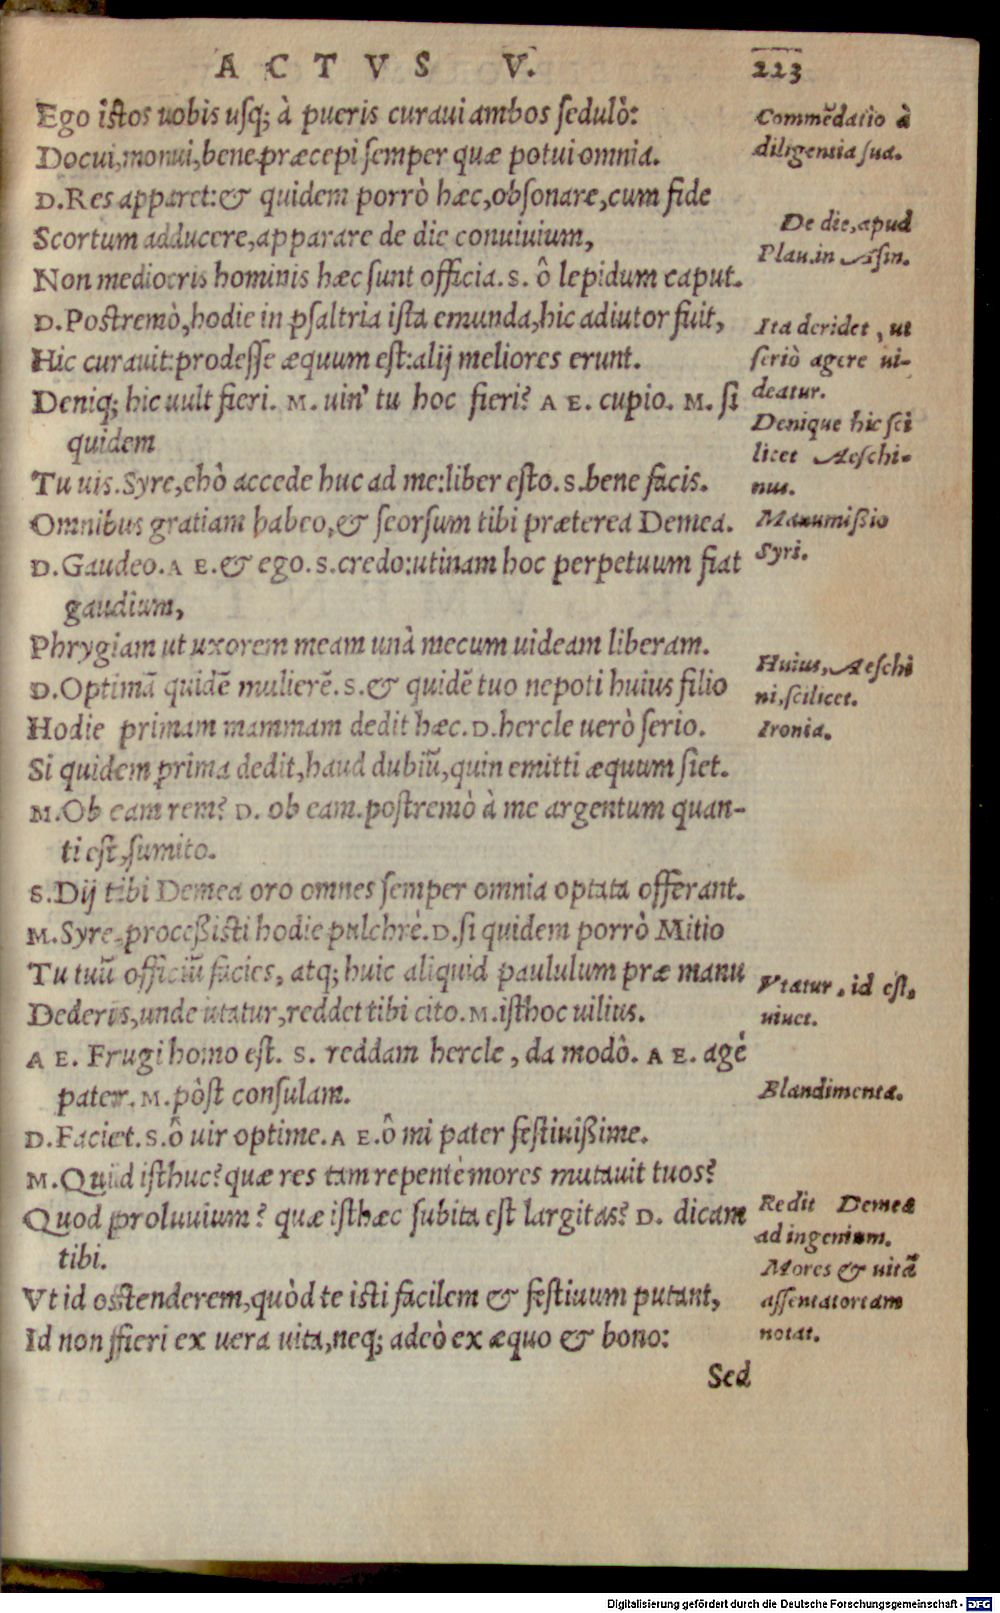 ACTVS V.
223
Ego istos uobis usq; à pueris curaui ambos sedulò:
Docui, monui, bene præcepi semper quæ potui omnia.
D. Res apparet: & quidem porrò hæc, obsonare, cum fide
Scortum adducere, apparare de die conuiuium,
Non mediocris hominis hæc sunt officia. S. ô lepidum caput.
D. Postremò, hodie in psaltria ista emunda, hic adiutor fuit,
Hic curauit: prodesse æquum est: alij meliores erunt.
Deniq; hic uult fieri. M. uin' tu hoc fieri? AE. cupio. M. si
quidem
Tu uis. Syre, ehò accede huc ad me: liber esto. S. bene facis.
Omnibus gratiam habeo, & seorsum tibi præterea Demea.
D. Gaudeo. AE. & ego. S. credo: utinam hoc perpetuum fiat
gaudium,
Phrygiam ut uxorem meam unà mecum uideam liberam.
D. Optimā quidē mulierē. S. & quidē tuo nepoti huius filio
Hodie primam mammam dedit hæc. D. hercle uerò serio.
Si quidem prima dedit, haud dubiū, quin emitti æquum siet.
M. Ob eam rem? D. ob eam. postremò à me argentum quan-
ti est, sumito.
S. Dij tibi Demea oro omnes semper omnia optata offerant.
M. Syre, proceßisti hodie pulchrè. D. si quidem porrò Mitio
Tu tuū officiū facies, atq; huic aliquid paululum præ manu
Dederis, unde utatur, reddet tibi cito. M. isthoc uilius.
AE. Frugi homo est. S. reddam hercle, da modò. AE. agé
pater. M. pòst consulam.
D. Faciet. S. ô uir optime. AE. ô mi pater festiuißime.
M. Quid isthuc? quæ res tam repentè mores mutauit tuos?
Quod proluuium? quæ isthæc subita est largitas? D. dicam
tibi.
Vt id ostenderem, quòd te isti facilem & festiuum putant,
Id non fieri ex uera uita, neq; adeò ex æquo & bono:
Sed
Commēdatio à
diligentia sua.
De die, apud
Plau. in Asin.
Ita deridet, ut
seriò agere ui-
deatur.
Denique hic sci
licet Aeschi-
nus.
Manumißio
Syri.
Huius, Aeschi
ni, scilicet.
Ironia.
Vtatur, id est,
uiuet.
Blandimenta.
Redit Demea
ad ingenium.
Mores & uitā
assentatoriam
notat.
Digitalisierung gefördert durch die Deutsche Forschungsgemeinschaft - DFG